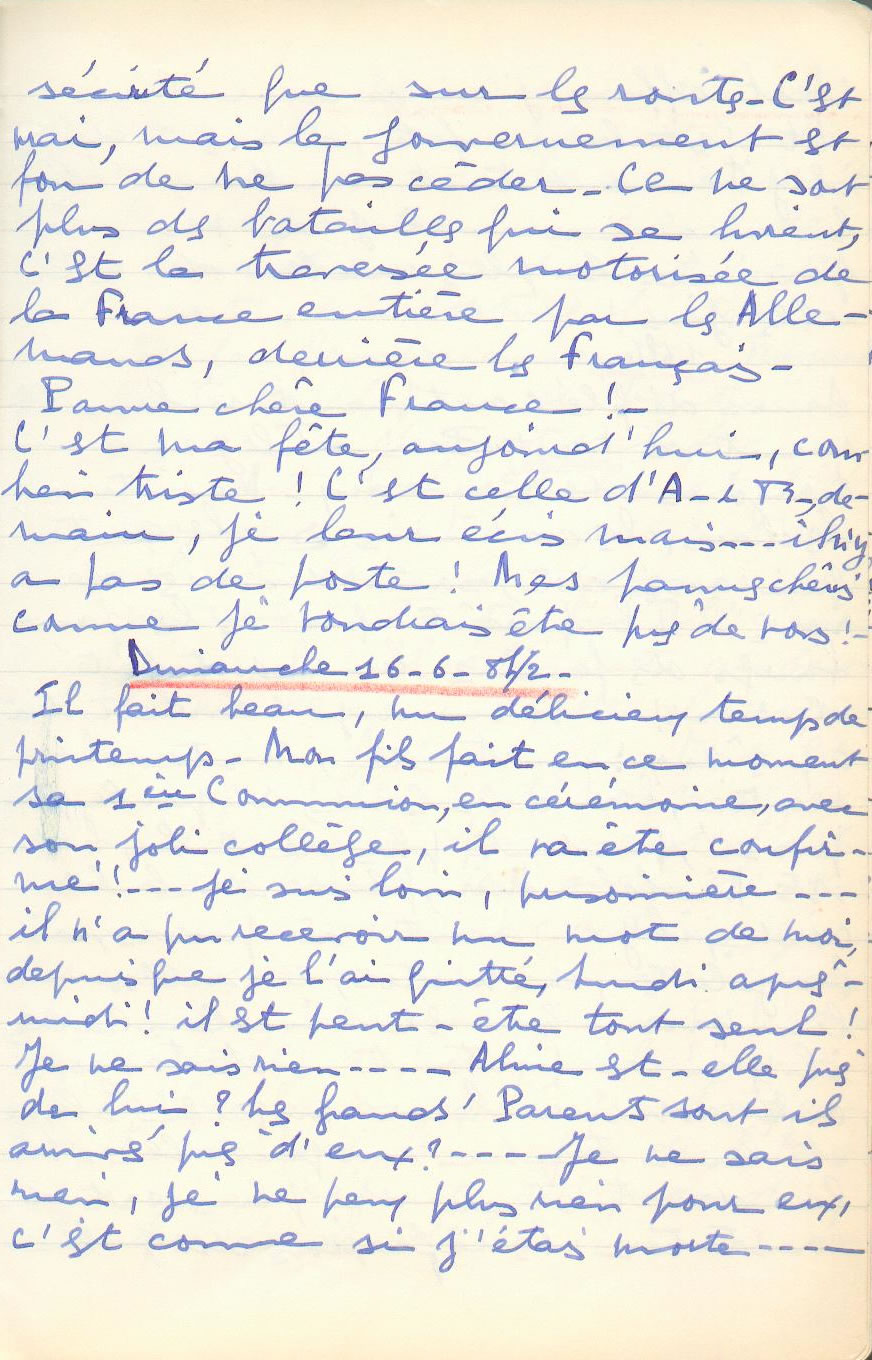 sécurité que sur les routes - C'est
vrai, mais le gouvernement est
fou de ne pas céder - Ce ne sont
plus des batailles qui se livrent,
c'est la traversée motorisée de
la France entière par les Alle-
mands, derrière les Français -
Pauvre chère France ! -
C'est ma fête, aujourd'hui, com
bien triste ! C'est celle d'A - de-
main, je leur écris mais --- il n'y
a pas de poste ! Mes pauvres chéris
comme je voudrais être près de vous ! -
Dimanche 16 - 6 - 8h/2 -
Il fait beau, un délicieux temps de
printemps - Mon fils fait en ce moment
sa 1ère Communion, en cérémonie, avec
son joli collège, il va être confir-
mé ! --- je suis loin, prisonnière ---
il n'a pu recevoir un mot de moi,
depuis que je l'ai quitté, lundi après-
midi ! il est peut-être tout seul !
Je ne sais rien ---- Aline est-elle près
de lui ? les grands' Parents sont ils
arrivés près d'eux ? ---- Je ne sais
rien, je ne peux plus rien pour eux,
c'est comme si j'étais morte ----